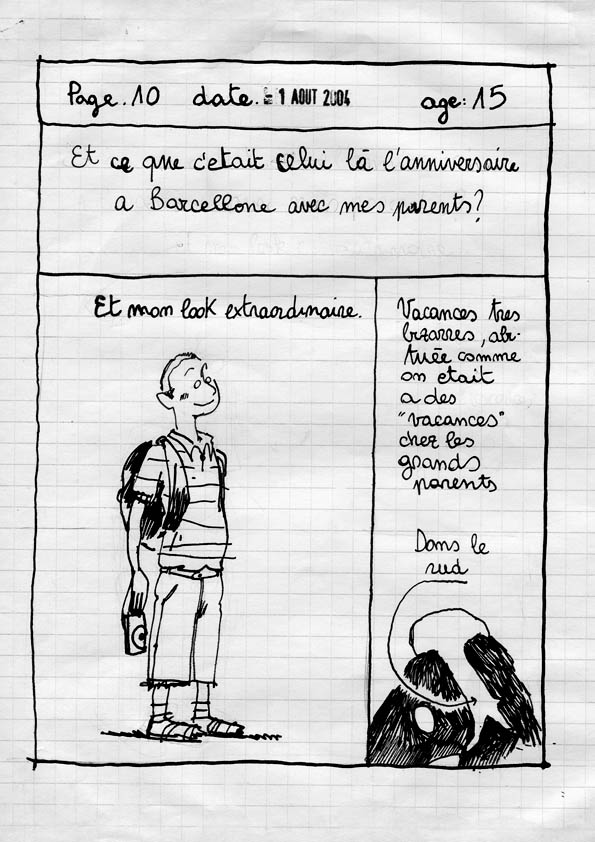 Page. 10 date. 1 AOUT 2004 age: 15
Et ce que c'etait celui là l'anniversaire
a Barcellone avec mes parents?
Et mon look extraordinaire.
Vacances tres
bizarres, abi-
tuée comme
on etait
a des
"vacances"
chez les
grands
parents
Dans le
sud